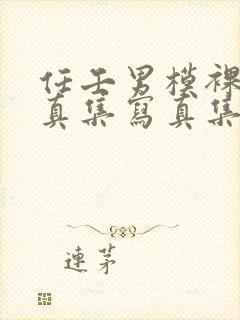 任壬男模裸
真集寫真集
連茅